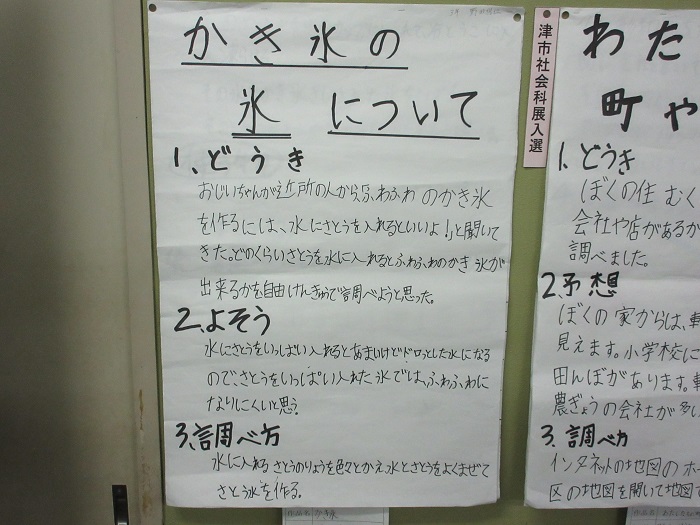 かき氷の
氷 について
1、どうき
おじいちゃんが近所の人から、ふわふわのかき氷
を作るには、水にさとうを入れるといいよ!」と聞いて
きた。どのくらいさとうを水に入れるとふわふわのかき氷が
出来るかを自由けんきゅうで調べようと思った。
2、よそう
水にさとうをいっぱい入れるとあまいけどドロッとした水になる
ので、さとうをいっぱい入れた氷では、ふわふわに
なりにくいと思う。
3、調べ方
水に入れるさとうのりょうを色々とかえ、水とさとうをよくまぜて
さとう水を作る。
津市社会科展入選
わた
町や
1.どうき
ぼくの住むく
会社や店があるか
調べました。
2.予想
ぼくの家からは、車
見えます。小学校に
田んぼがあります。
農ぎょうの会社が多い
3.調べ方
インタネットの地図のホー
区の地図を開いて地図で
作品名 かき氷
作品名